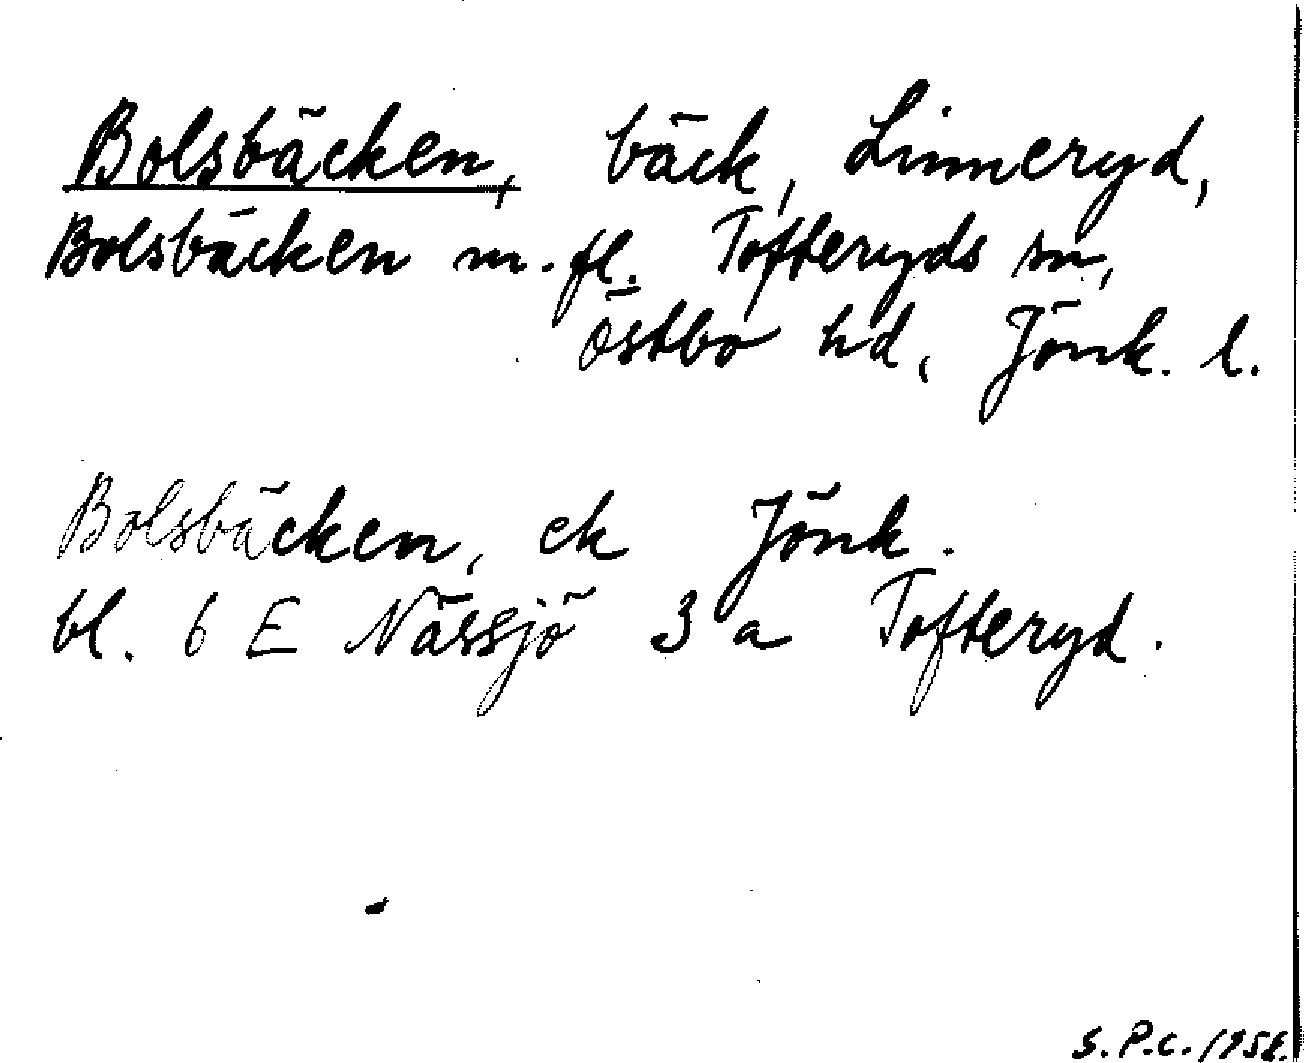 Bolsbäcken, bäck, Linneryd,
Bolsbäcken m.fl. Tofteryds sn,
Östbo hd, Jönk. l.
Bolsbäcken, ek Jönk.
bl. 6 E Nässjö 3 a Tofteryd.
S.P.C. 1958.